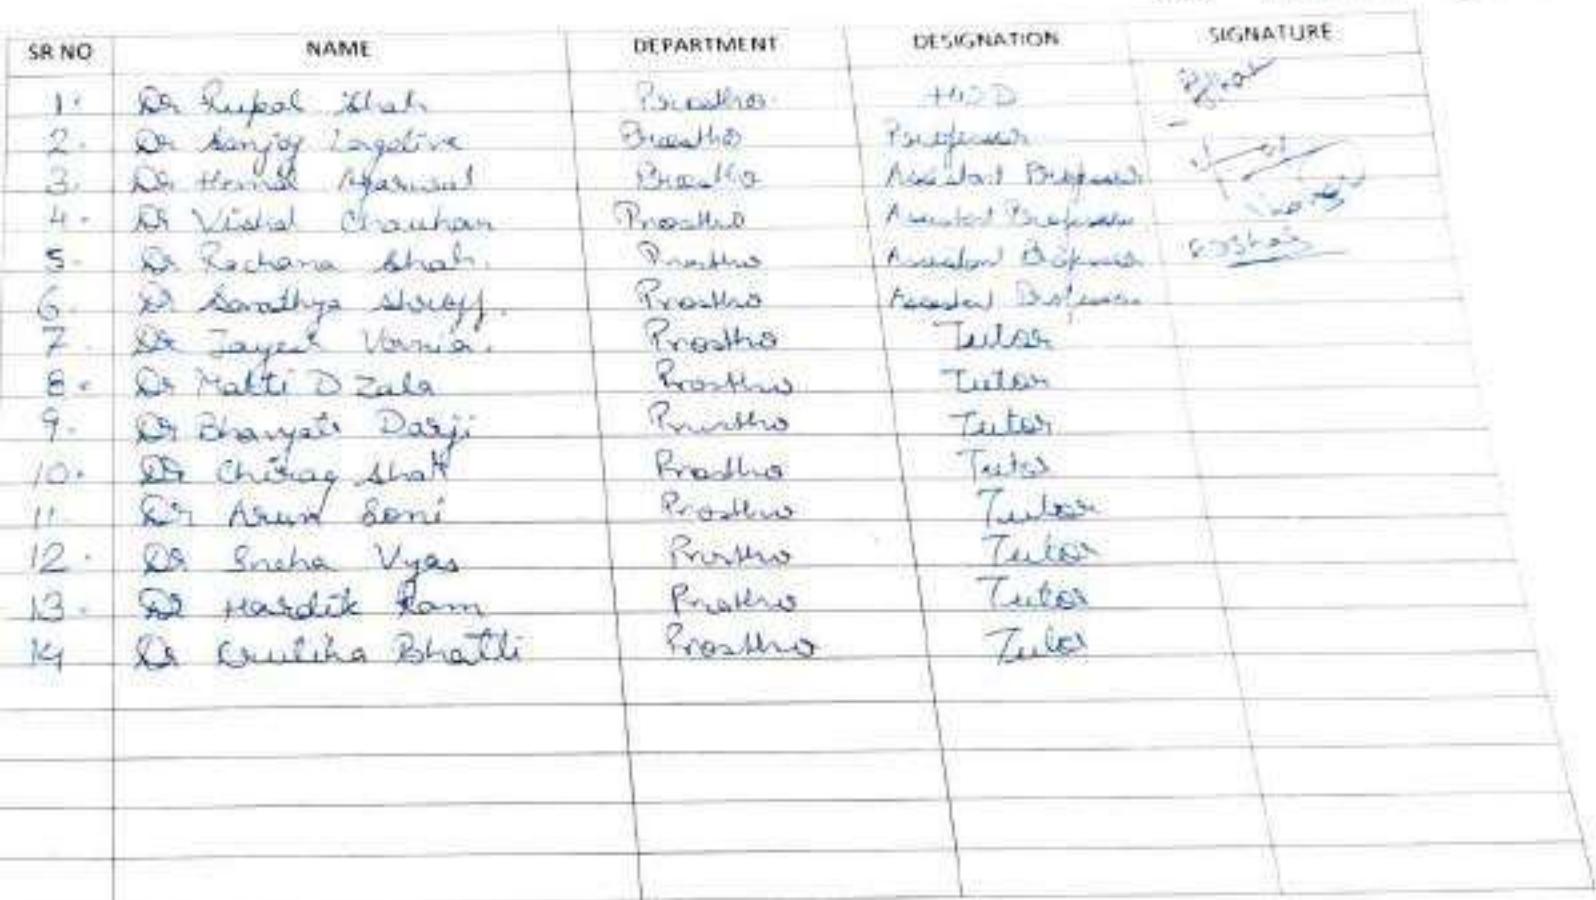 SR NO NAME DEPARTMENT DESIGNATION SIGNATURE
1. Dr Rupal Shah Prostho HOD
2. Dr Sanjay Lagdive Prostho Professor
3. Dr Hemal Agarwal Prostho Assistant Professor
4. Dr Vishal Chauhan Prostho Assistant Professor
5. Dr Rachana Shah. Prostho Assistant Professor RJShah
6. Dr Shroff. Prostho Assistant Professor
7. Dr Jayesh Vania. Prostho Tutor
8. Dr D Zala Prostho Tutor
9. Dr Darji Prostho Tutor
10. Dr Chirag Shah Prostho Tutor
11. Dr Arun Soni Prostho Tutor
12. Dr Sneha Vyas Prostho Tutor
13. Dr Hardik Ram Prostho Tutor
14 Dr Bhatti Prostho Tutor